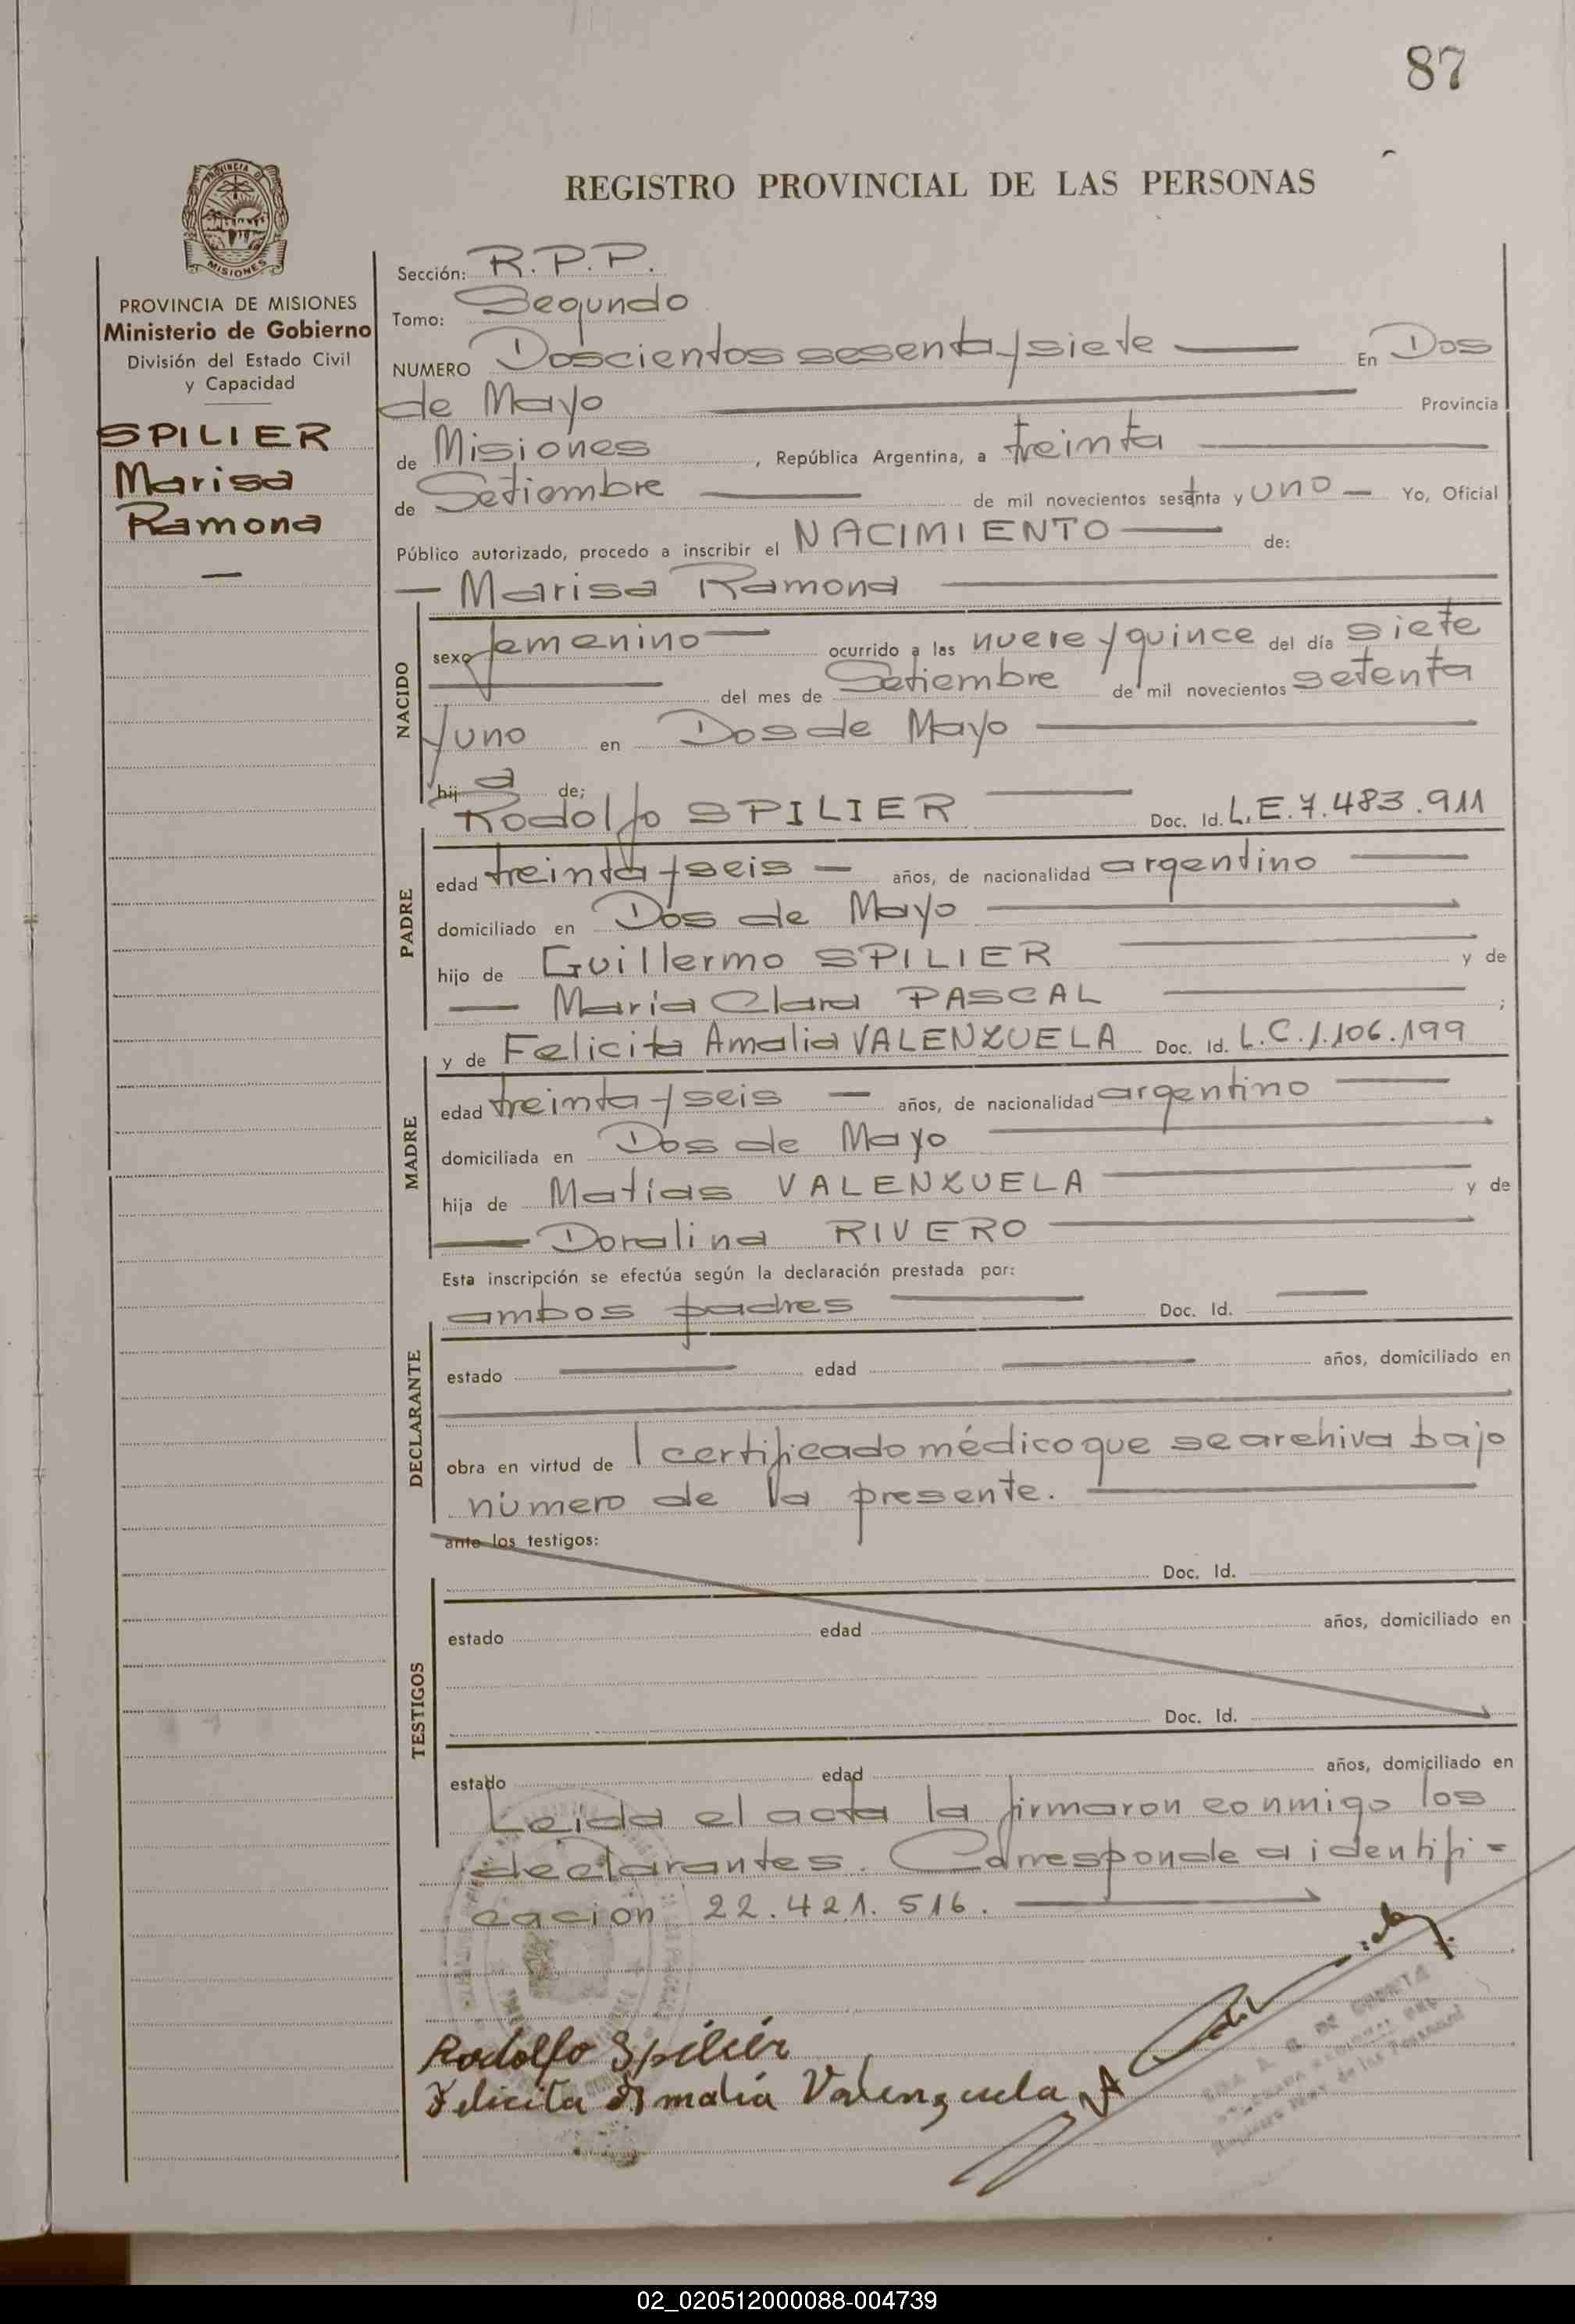 87
REGISTRO PROVINCIAL DE LAS PERSONAS
PROVINCIA DE MISIONES
Ministerio de Gobierno
División del Estado Civil
y Capacidad
SPILIER
Marisa
Ramona
Sección: R.P.P.
Tomo: Segundo
NUMERO Doscientos sesenta y siete — En Dos
de Mayo — Provincia
de Misiones, República Argentina, a treinta —
de Setiembre — de mil novecientos setenta y uno — Yo, Oficial
Público autorizado, procedo a inscribir el NACIMIENTO — de:
— Marisa Ramona —
NACIDO
sexo femenino — ocurrido a las nueve y quince del día siete
— del mes de Setiembre de mil novecientos setenta
y uno en Dos de Mayo —
hija de;
Rodolfo SPILIER — Doc. Id. L.E. 7.483.911
PADRE
edad treinta y seis — años, de nacionalidad argentino —
domiciliado en Dos de Mayo —
hijo de Guillermo SPILIER — y de
— María Clara PASCAL — ;
y de Felicita Amalia VALENZUELA Doc. Id. L.C. 1.106.199
MADRE
edad treinta y seis — años, de nacionalidad argentino —
domiciliada en Dos de Mayo —
hija de Matías VALENZUELA — y de
— Doralina RIVERO —
Esta inscripción se efectúa según la declaración prestada por:
ambos padres — Doc. Id. —
DECLARANTE
estado — edad — años, domiciliado en
obra en virtud de l certificado médico que se archiva bajo
número de la presente. —
ante los testigos:
Doc. Id.
TESTIGOS
estado edad años, domiciliado en
Doc. Id.
estado edad años, domiciliado en
Leida el acta la firmaron conmigo los
declarantes. Corresponde a identifi-
cación 22.421.516. —
Rodolfo Spiliér
Felicita Amalia Valenzuela
02_020512000088-004739